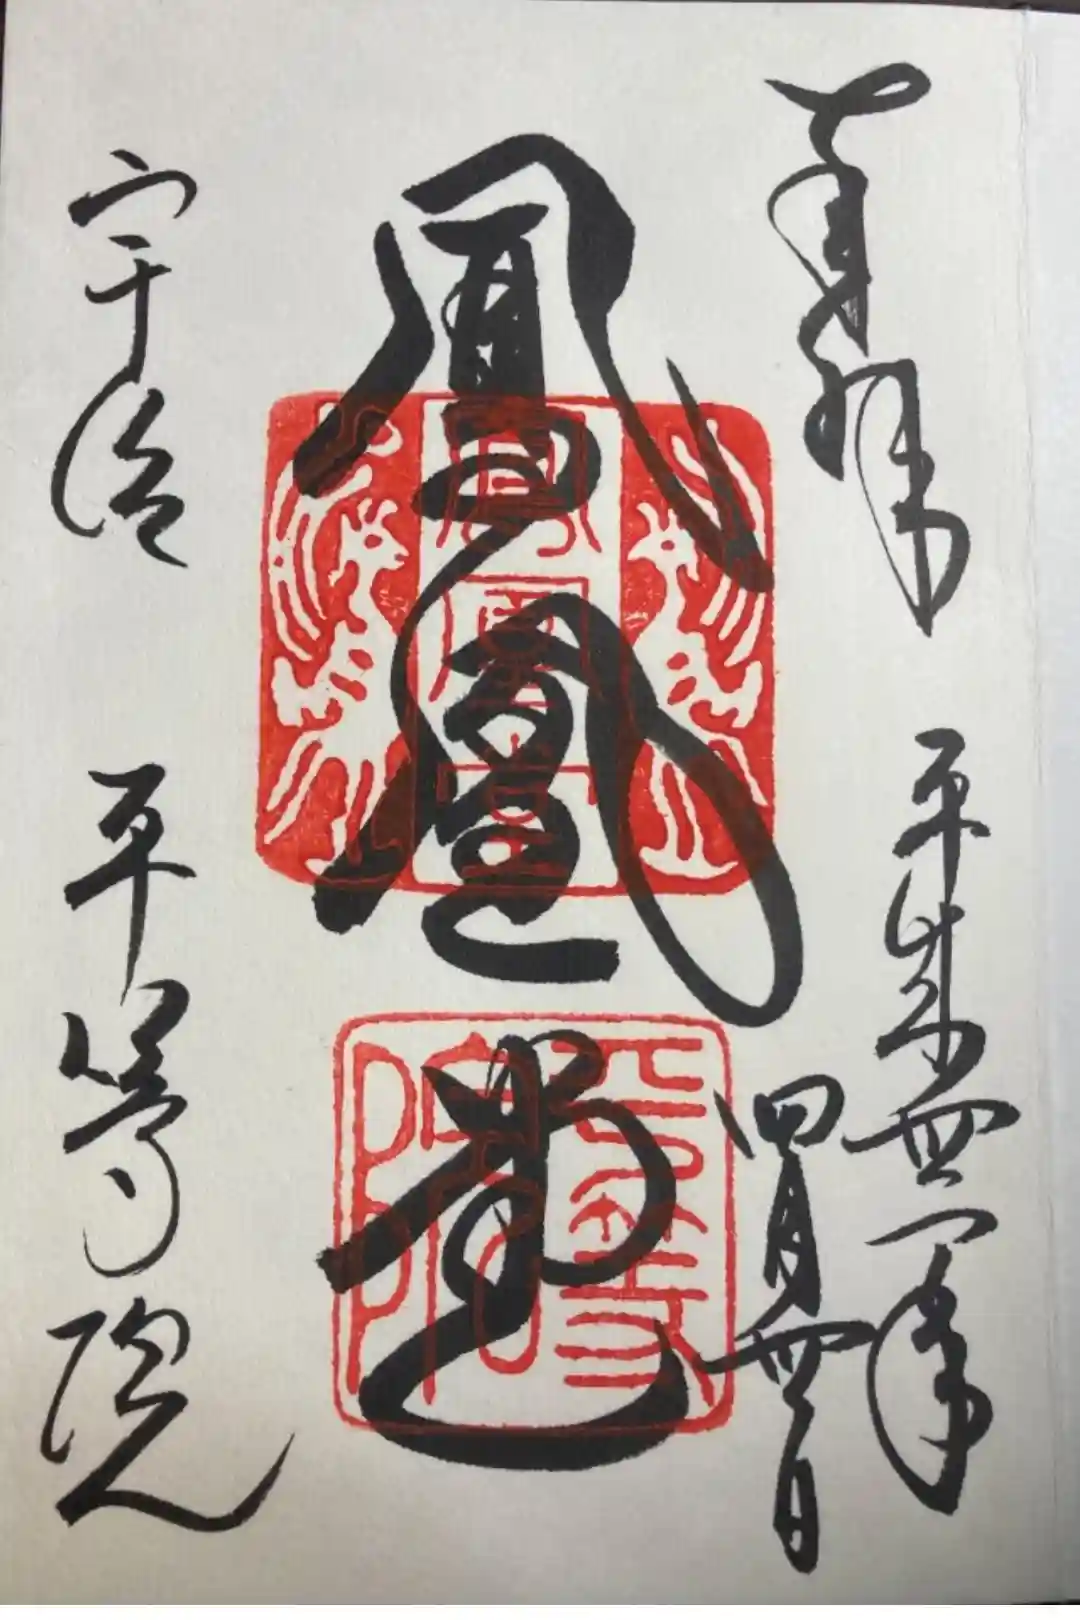 奉拝
平成丗一年
四月丗日
鳳凰堂
宇治 平等院
鳳凰堂
平等院